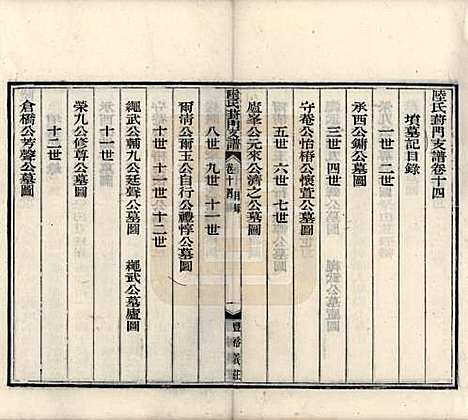 陸氏葑門支譜卷十四
墳墓記目錄
一世 二世
永西公鏞公墓圖
三世 四世
守菴公怡橋公懷萱公墓圖
五世 六世 七世
廬峯公元來公濟之公墓圖
陸氏葑門支譜 卷十四 目錄 一 豐裕義莊
八世 九世 十一世
爾清公爾玉公自行公禮惇公墓圖
十世 十一世 十二世
繩武公輔九公廷聲公墓圖 繩武公墓廬圖
十一世
榮九公修尊公墓圖
十二世
倉橋公芳聲公墓圖